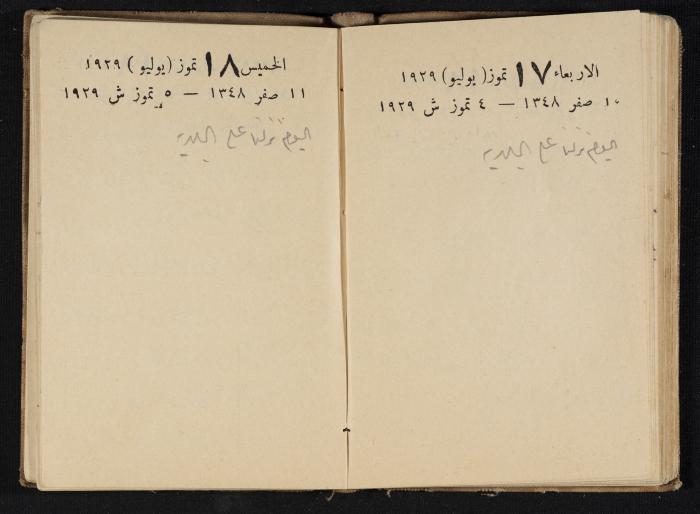 الاربعاء ١٧ تموز (يوليو) ١٩٢٩
١٠ صفر ١٣٤٨ — ٤ تموز ش ١٩٢٩
اليوم نزلنا على البلديه
الخميس ١٨ تموز (يوليو) ١٩٢٩
١١ صفر ١٣٤٨ — ٥ تموز ش ١٩٢٩
اليوم نزلنا على البلديه